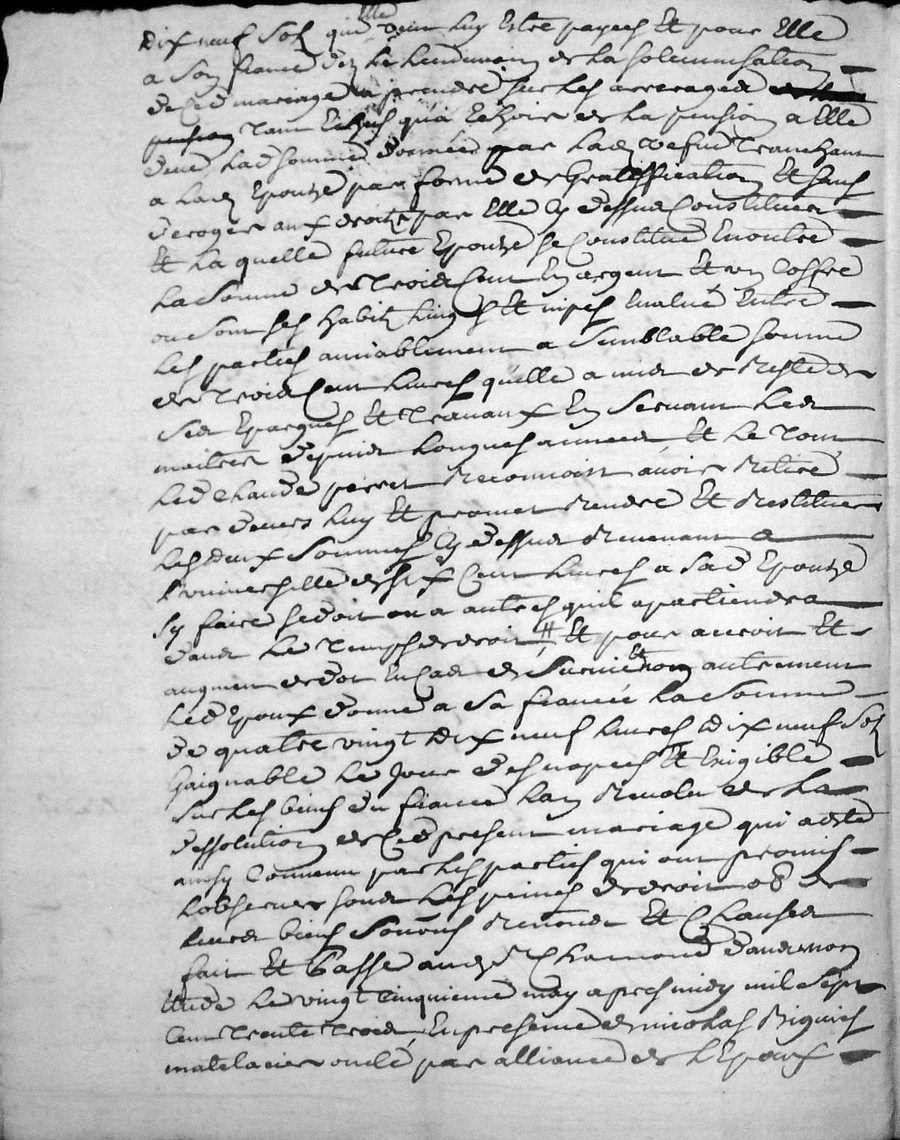 Dix neuf Sols que elle veut luy Estre payees Et pour Elle
a Son fiancé dez le Lendemain de la solemnisation
de Ced mariage a prendre sur les arrerages
pension tant Echus qua Echoir de la pension a Elle
deue lad somme donnée par lad vefue Tranchant
a lad Epouze par forme de Gratiffication Et sans
deroger aux droits par Elle cy dessus Constitues
Et La quelle future Epouze se Constitue Enoutre
La Somme de Trois Cent En argent Et un Coffre
ou Sont ses habitz linges Et nipes Evalué Entre
les parties amiablement a Semblable somme
de Trois Cent livres quelle a mis de Reste de
Ses Epargnes Et Travaux En Servant Les
maitres depuis Longues années Et le Tout
Led Claude perret Reconnoist avoir Retiré
par devers luy Et promet Rendre Et Restituer
Les deux Sommes cy dessus Revenant a
Luniverselle de six Cent livres a sad Epouze
Sy faire se doit ou a autres quil apartiendra
dans le Temps de droit Et pour accroit Et
augment de dot En Cas de Survie Et non autrement
led Epoux donne a Sa fiancée la Somme
de quatre vingt dix neuf livres dix neuf Sols
Gaignable le Jour des nopces Et Exigible
Sur les biens du fiancé Lan Revolu de la
dessolution de Ced present mariage qui a esté
ainsy Convenu par les parties qui ont promis
Lobserver sous les peines de droit ob de
leurs biens Soums Renonce Et Clauses
fait Et Passé aud St Chamond dans mon
Etude le vingt Cinquieme may apres midy mil Sept
Cent Trente Trois En presence de nicolas
matelacier oncle par alliance de L'Epoux